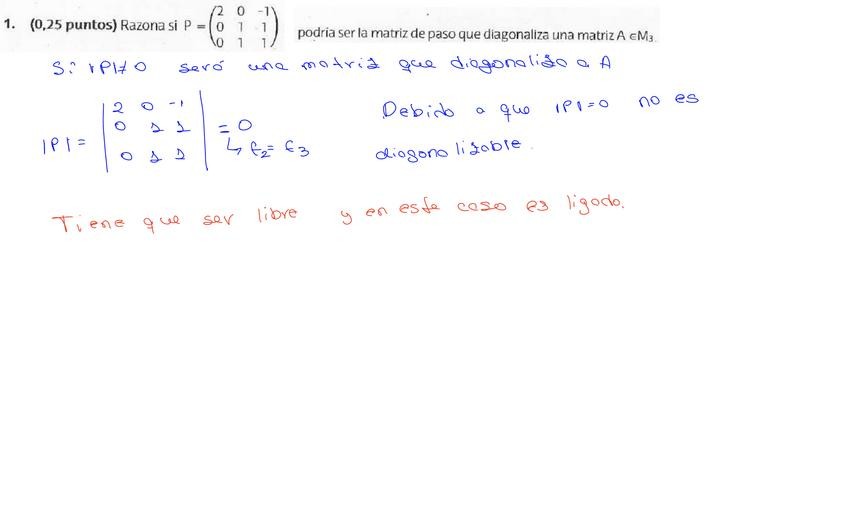 1. (0,25 puntos) Razona si P = (2 0 -1
0 1 1
0 1 1) podría ser la matriz de paso que diagonaliza una matriz A ∈M₃.
Si |P|≠0 será una matriz que diagonaliza a A
|P| = |2 0 -1
0 1 1
0 1 1| = 0
↳ F₂= F₃
Debido a que |P|=0 no es
diagonalizable.
Tiene que ser libre y en este caso es ligado.